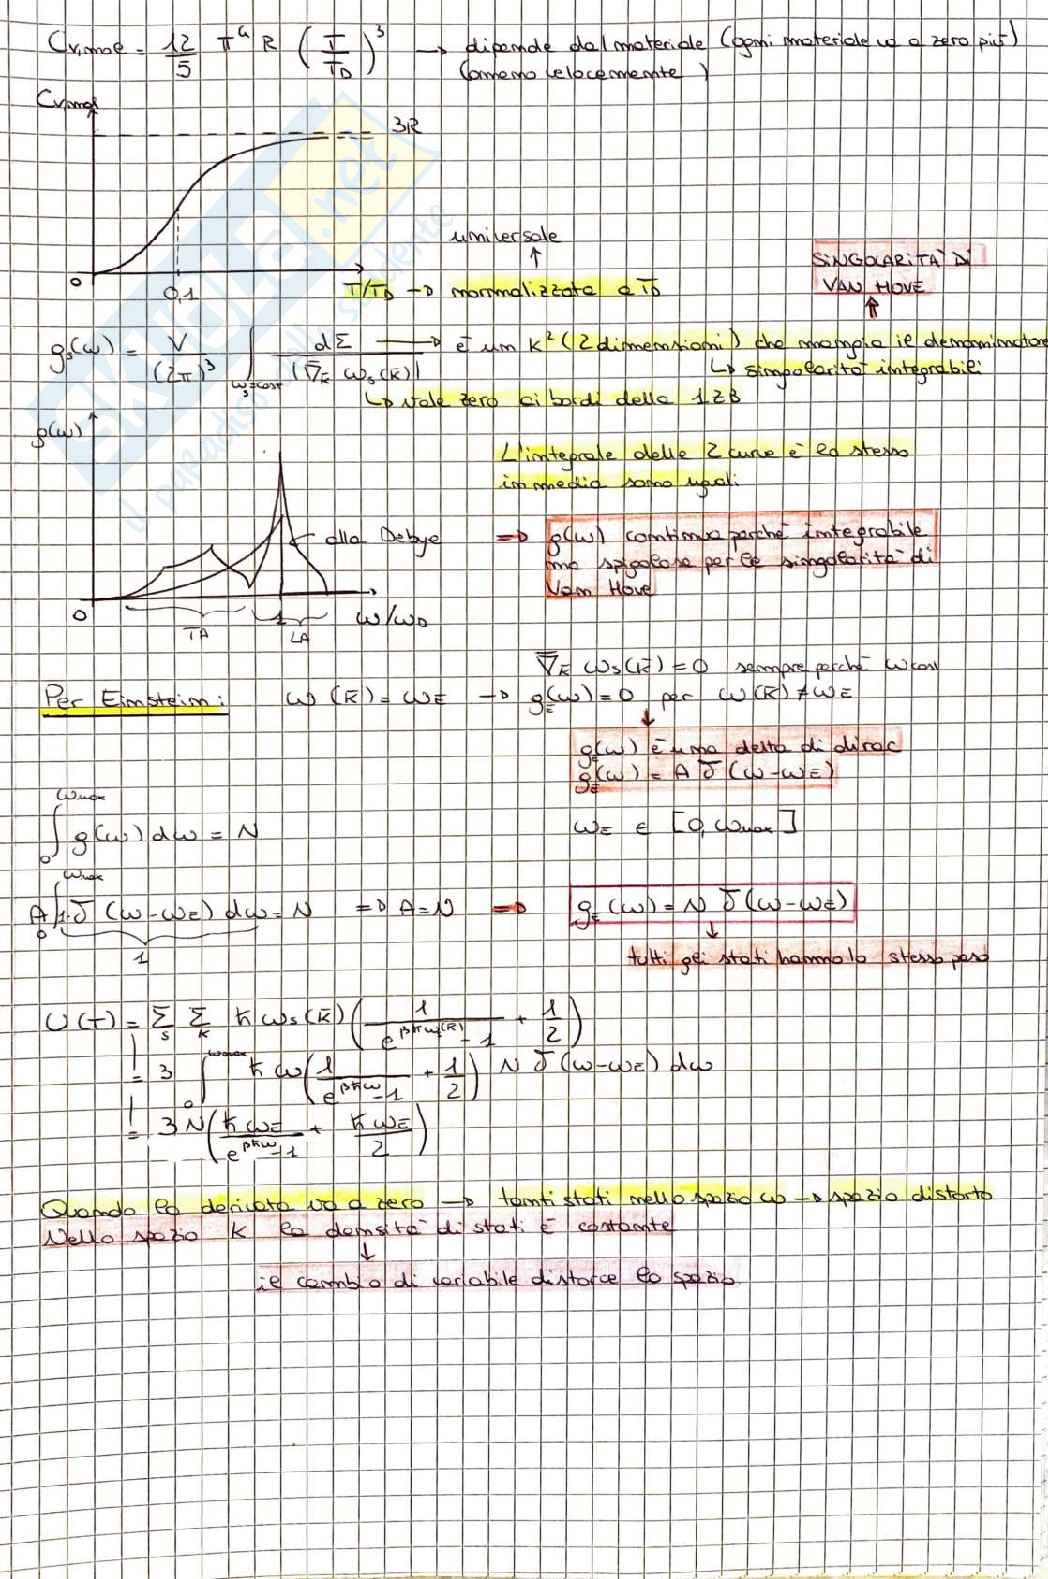 Cv,mol = 12/5 π⁴ R (T/T_D)³ → dipende dal materiale (ogni materiale va a zero più
o meno velocemente)
Cv,mol
3R
universale
↑
SINGOLARITÀ DI
VAN HOVE
0
0,1
T/T_D → normalizzata a T_D
g_s(ω) = V/(2π)³ ∫_{ω_s=cost} dΣ/|∇_k ω_s(k)| → è un k² (2 dimensioni) che mangia il denominatore
↳ singolarità integrabili
↳ vale zero ai bordi della 1ZB
g(ω)
L'integrale delle 2 curve è lo stesso
in media sono uguali
alla Debye
⇒ g(ω) continua perché integrabile
ma spigolosa per le singolarità di
Van Hove
0
1
ω/ω_D
TA
LA
∇_k ω_s(k) = 0 sempre perché ω cost
Per Einstein: ω(k) = ω_E → g_E(ω) = 0 per ω(k) ≠ ω_E
↓
g_E(ω) è una delta di dirac
g_E(ω) = A δ(ω-ω_E)
∫₀^{ωmax} g(ω) dω = N
ω_E ∈ [0, ωmax]
A ∫₀^{ωmax} 1·δ(ω-ω_E) dω = N ⇒ A = N ⇒ g_E(ω) = N δ(ω-ω_E)
1
↓
tutti gli stati hanno lo stesso peso
U(T) = Σ_s Σ_k ħ ω_s(k) (1/(e^{βħω_s(k)} - 1) + 1/2)
= 3 ∫₀^{ωmax} ħω (1/(e^{βħω} - 1) + 1/2) N δ(ω-ω_E) dω
= 3N (ħω_E/(e^{βħω} - 1) + ħω_E/2)
Quando la derivata va a zero → tanti stati nello spazio ω → spazio distorto
Nello spazio k la densità di stati è costante
↓
il cambio di variabile distorce lo spazio